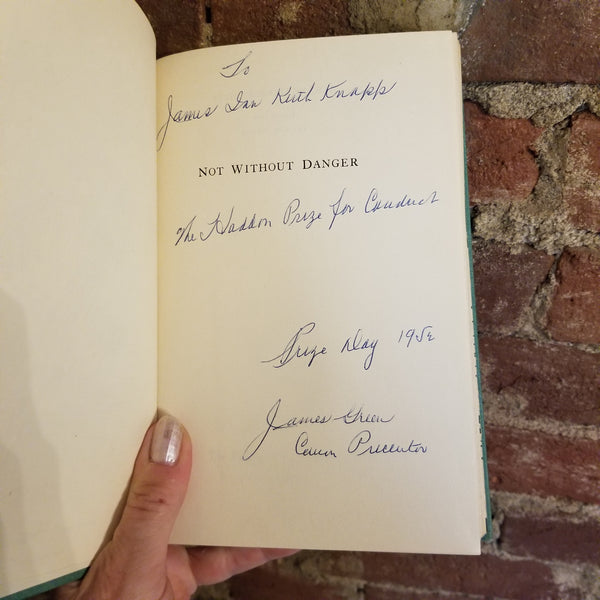 To
James Ian Keith Knapp
NOT WITHOUT DANGER
The Haddon Prize for Conduct
Prize Day 1952
James Green
Canon Precentor